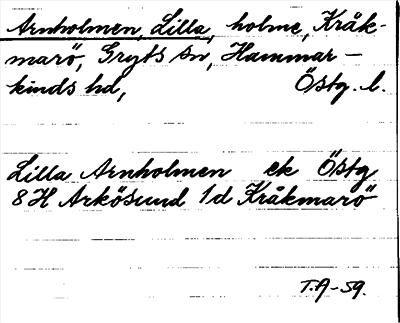 Arnholmen, Lilla, holme, Kråk-
marö, Gryts sn, Hammar-
kinds hd, Östg. l.
Lilla Arnholmen ek Östg
8H Arkösund 1d Kråkmarö
T.A-59.